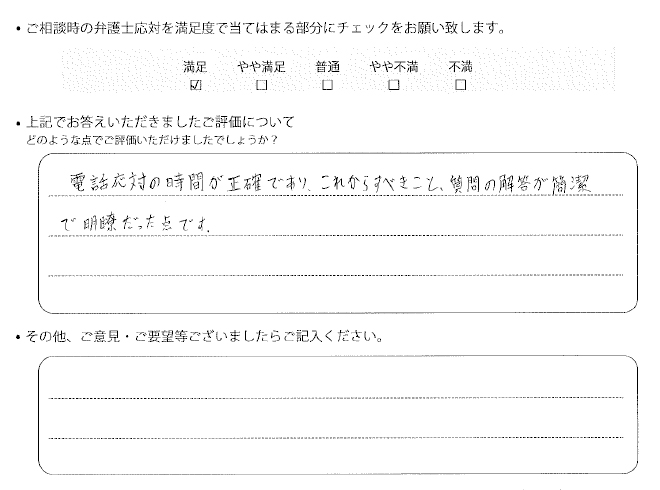 • ご相談時の弁護士応対を満足度で当てはまる部分にチェックをお願い致します。
満足 やや満足 普通 やや不満 不満
☑ □ □ □ □
• 上記でお答えいただきましたご評価について
どのような点でご評価いただけましたでしょうか？
電話応対の時間が正確であり、これからすべきこと、質問の解答が簡潔
で明瞭だった点です。
• その他、ご意見・ご要望等ございましたらご記入ください。